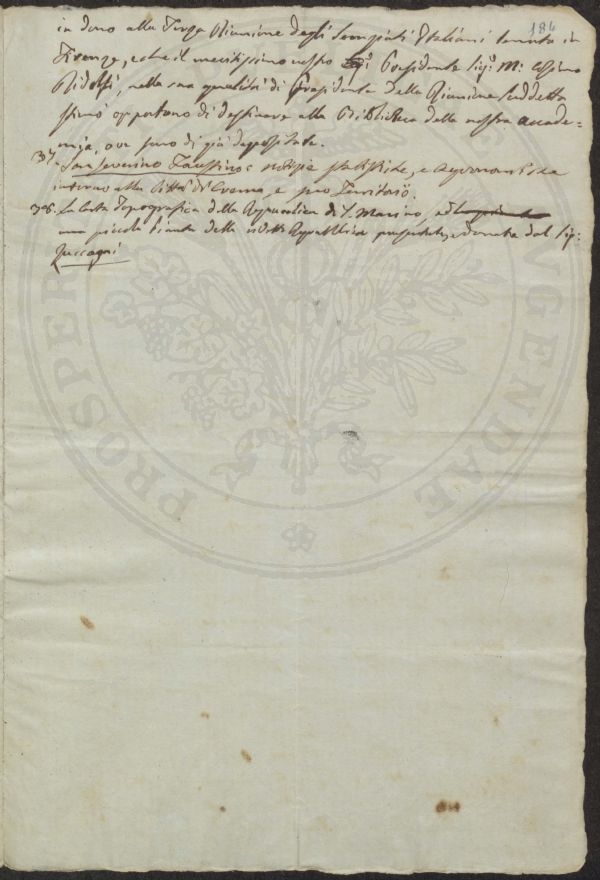 184
in dono alla Terza Riunione degli Scenziati Italiani tenuta in
Firenze, e che il meritissimo nostro Presidente Sig.r M: Cosimo
Ridolfi, nella sua qualità di Presidente della Riunione suddetta
stimò opportuno di destinare alla Biblioteca della nostra accade-
mia, ove sono di già depositate.
37. Sanseverino Faustino: notizie statistiche, e Agronomiche
intorno alla Città di Crema, e suo Territorio
38. La Carta Topografica della Repubblica di S. Marino,
una piccola pianta della Repubblica presentate, e donate dal Sig:
Zuccagni
PROSPER
AUGENDAE